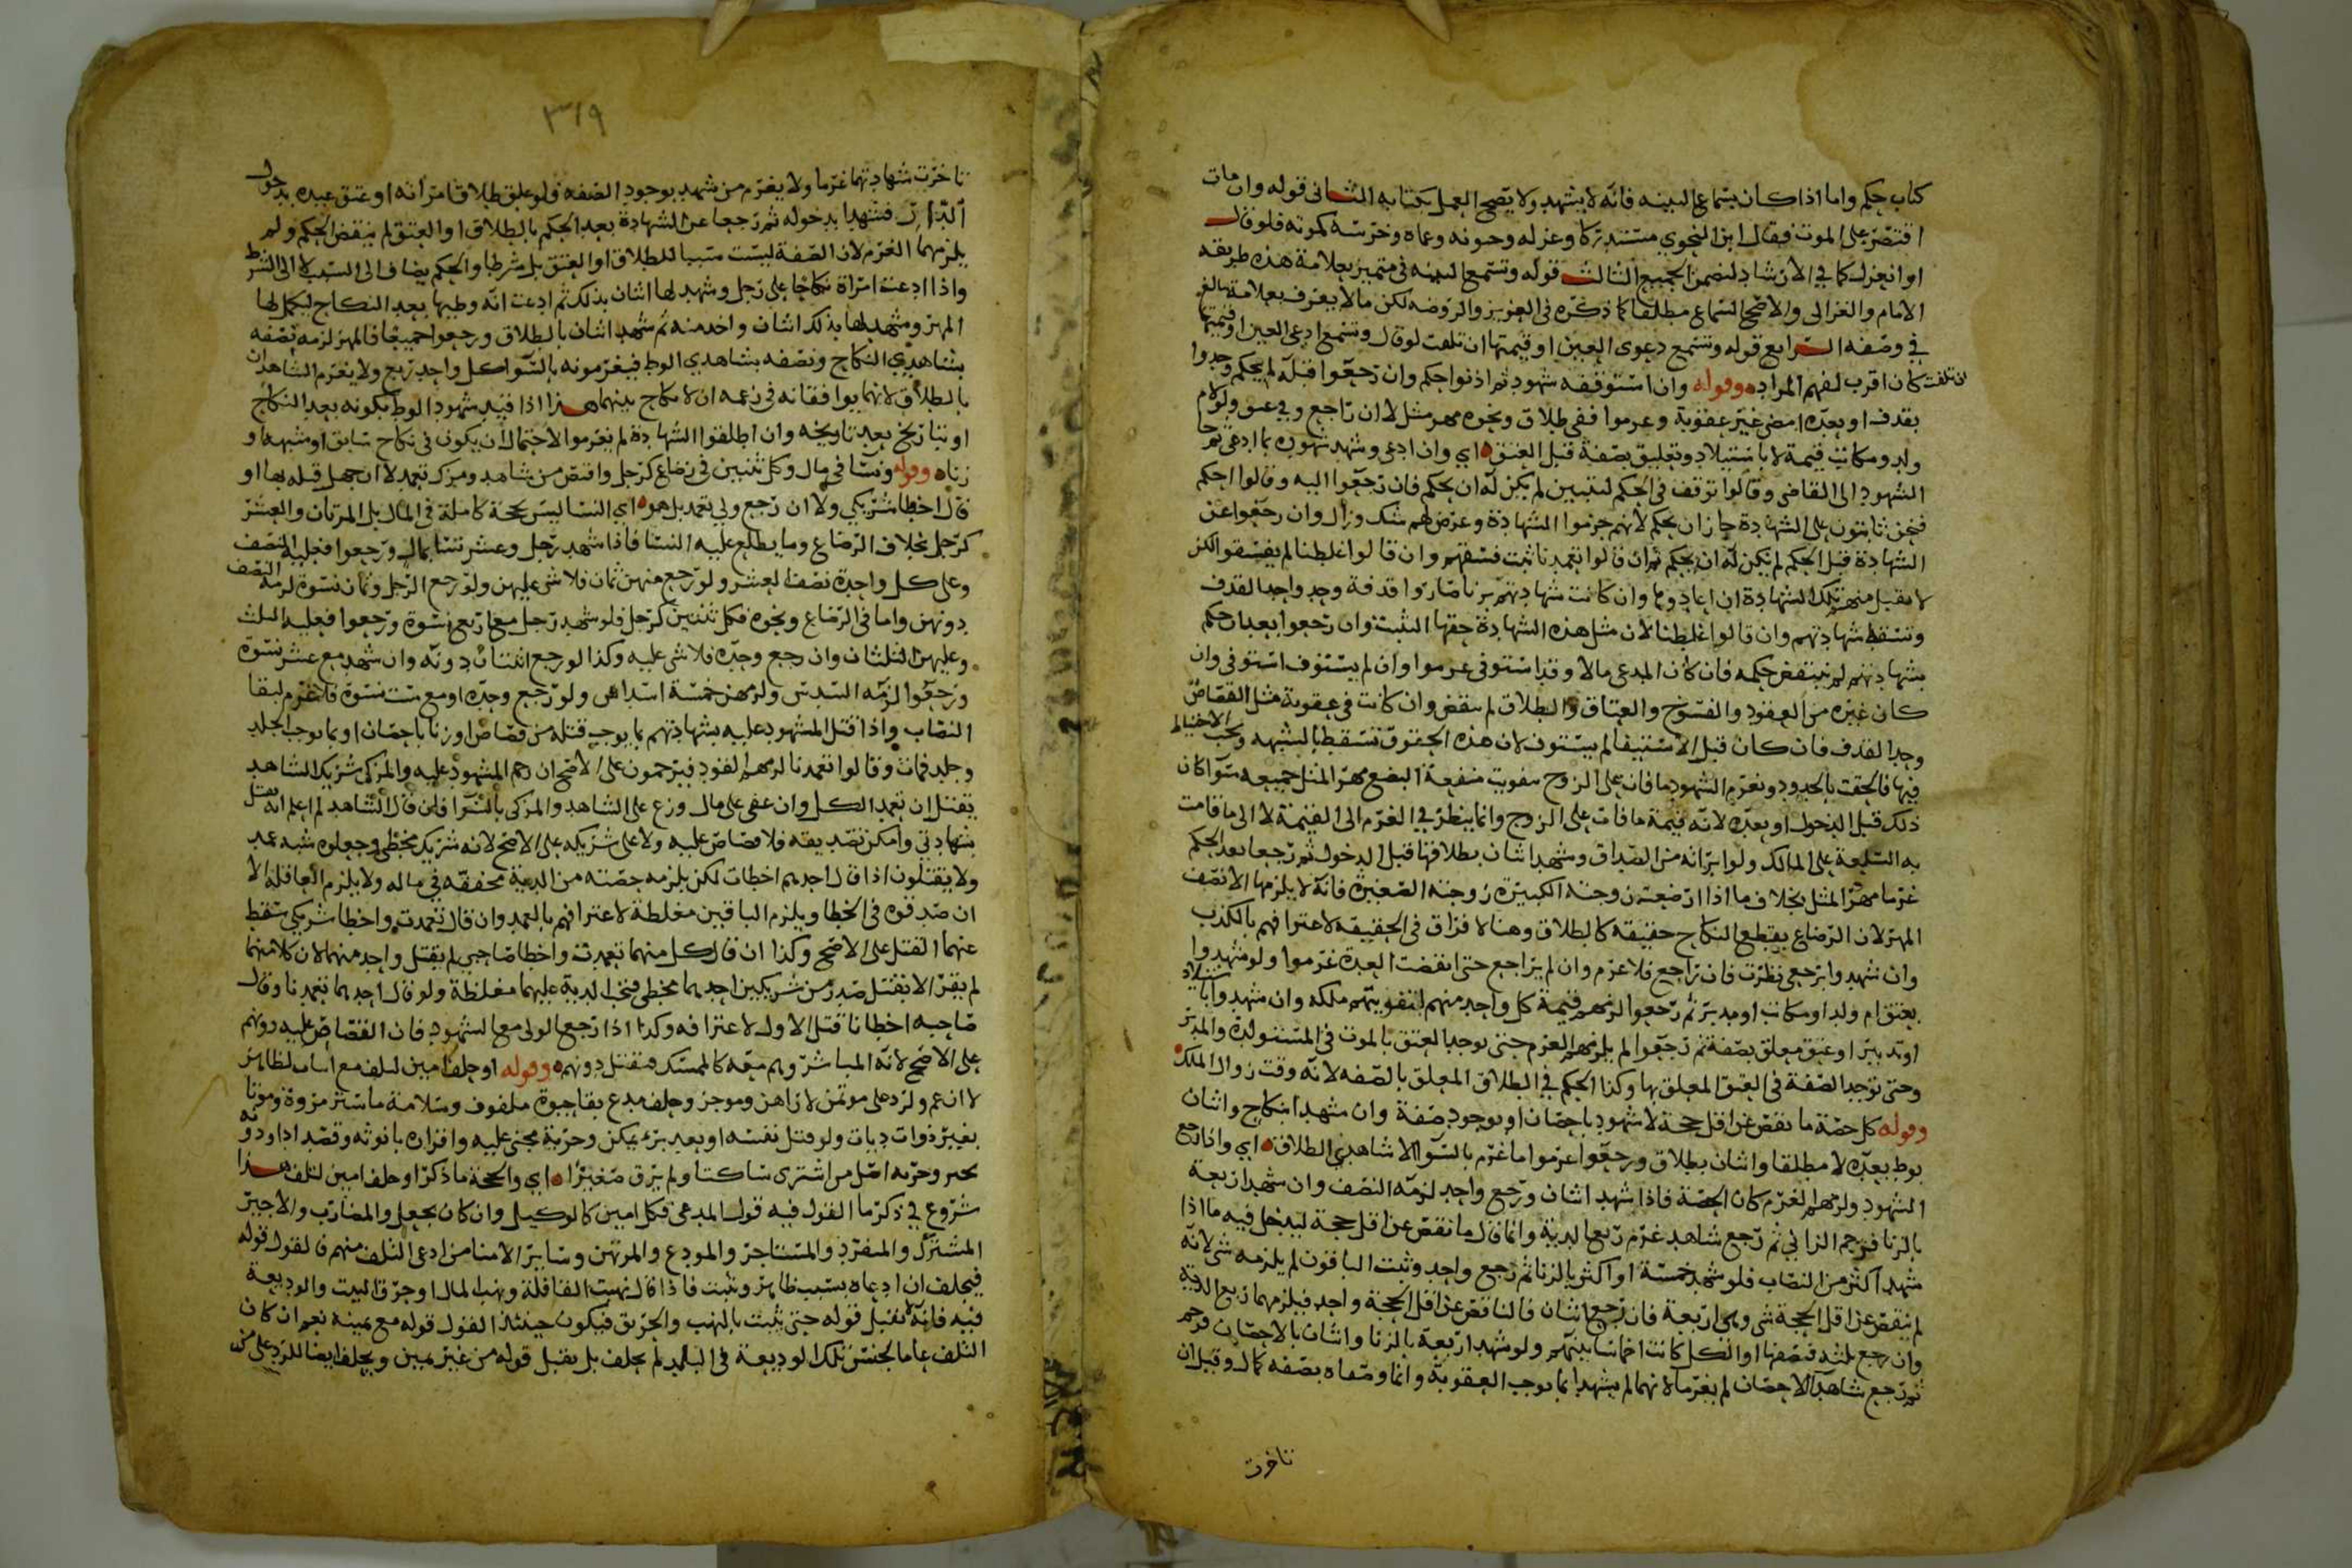 كتاب حكم واما اذا كان بسماع البينه فانه لا يشهد ولا يصح العمل بكتابه الثانى قوله وان مات
اقتصر على الموت فقال ابن النحوي مستدركا وعزله وجنونه وعماه وخرسه كموته فلو قال
او انعزل كما في الارشاد لضمن الجميع الثالث قوله وتسمع البينه فى متميز بعلامة هذه طريقه
الامام والغزالى والاصح السماع مطلقا كما ذكره فى العزيز والروضه لكن مالا يعرف بعلامة بالغ
في وصفه الرابع قوله وتسمع دعوى العين او قيمتها ان تلفت لو قال وتسمع ادعى العين او قيمتها
ان تلفت كان اقرب لفهم المراد وقوله وان استوقفه شهود ثم اذنوا حكم وان رجعوا قبله لم يحكم وحدوا
بقذف او بعده امضى غير عقوبة وغرموا ففى طلاق ونحوه مهر مثل لا ان راجع وفى عتق ولو لام
ولد ومكاتب قيمة لا باستيلاد وتعليق بصفة قبل العتق اي وان ادعى وشهد شهوده بما ادعى ثم جا
الشهود الى القاضى وقالوا توقف فى الحكم لنتبين لم يكن له ان يحكم فان رجعوا اليه وقالوا احكم
فنحن ثابتون على الشهادة جاز ان يحكم لانهم جزموا الشهادة وعرض لهم شك وزال وان رجعوا عن
الشهادة قبل الحكم لم يكن له ان يحكم ثم ان قالوا تعمدنا ثبت فسقهم وان قالوا غلطنا لم يفسقوا لكن
لا يقبل منهم تلك الشهادة ان اعادوها وان كانت شهادتهم بزنا صاروا قذفة وحد واحد القذف
وتسقط شهادتهم وان قالوا غلطنا لان مثل هذه الشهادة حقها التثبت وان رجعوا بعد ان حكم
بشهادتهم لم ينتقض حكمه فان كان المدعى مالا وقد استوفى غرموا وان لم يستوف استوفى وان
كان غيره من العقود والفسوخ والعتاق والطلاق لم ينقض وان كانت فى عقوبة مثل القصاص
وحد القذف فان كان قبل الاستيفا لم يستوف لان هذه الحقوق تسقط بالشبهه ويجب الاحتياط
فيها فالحقت بالحدود ونغرم الشهود ما فات على الزوج بتفويت منفعة البضع مهر المثل جميعه سوا كان
ذلك قبل الدخول او بعده لانه قيمة ما فات على الزوج وانما ينظر في الغرم الى القيمة لا الى ما قامت
به السلعة على المالك ولو ابراته من الصداق وشهد اثنان بطلاقها قبل الدخول ثم رجعا بعد الحكم
غرما مهر المثل بخلاف ما اذا ارضعت زوجته الكبيرة زوجته الصغيرة فانه لا يلزمها الا نصف
المهر لان الرضاع يقطع النكاح حقيقة كالطلاق وهنا لا فراق فى الحقيقة لاعترافهم بالكذب
وان شهدوا برجعى نظرت فان راجع فلا غرم وان لم يراجع حتى انقضت العدة غرموا ولو شهدوا
بعتق ام ولد او مكاتب او مدبر ثم رجعوا لزمهم قيمة كل واحد منهم لتفويتهم ملكه وان شهدوا باستيلاد
او تدبير او عتق معلق بصفة ثم رجعوا لم يلزمهم الغرم حتى يوجد العتق بالموت فى المستولدة والمدبر
وحتى توجد الصفة فى العتق المعلق بها وكذا الحكم في الطلاق المعلق بالصفه لانه وقت زوال الملك
وقوله كل حصة ما نقص عن اقل حجة لا شهود باحصان او بوجود صفة وان شهد بنكاح واثنان
بوط بعده لا مطلقا واثنان بطلاق ورجعوا غرموا ما غرم بالسوا الا شاهدي الطلاق اي واذا رجع
الشهود ولزمهم الغرم كان الحصة فاذا شهد اثنان ورجع واحد لزمه النصف وان شهد اربعة
بالزنا فرجم الزاني ثم رجع شاهد غرم ربع الدية وانما قال ما نقص عن اقل حجة ليدخل فيه ما اذا
شهد اكثر من النصاب فلو شهد خمسة او اكثر بالزنا ثم رجع واحد وثبت الباقون لم يلزمه شى لانه
لم ينقص عن اقل الحجة شى وهى اربعة فان رجع اثنان فالناقص عن اقل الحجة واحد فيلزمهما ربع الدية
وان رجع ثلثه فنصفها او الكل كانت اخماسا بينهم ولو شهد اربعة بالزنا واثنان بالاحصان فرجم
ثم رجع شاهدا الاحصان لم يغرما لانهما لم يشهدا بما يوجب العقوبة وانما وصفاه بصفه كمال وقيل ان
تاخرت
٣١٩
تاخرت شهادتهما غرما ولا يغرم من شهد بوجود الصفه فلو علق طلاق امراته او عتق عبده بدخول
الدار فشهدا بدخوله ثم رجعا عن الشهادة بعد الحكم بالطلاق او العتق لم ينقض الحكم ولم
يلزمهما الغرم لان الصفة ليست سببا للطلاق او العتق بل شرطا والحكم يضاف الى السبب لا الى الشرط
واذا ادعت امراة نكاحا على رجل وشهد لها اثنان بذلك ثم ادعت انه وطيها بعد النكاح ليكمل لها
المهر وشهد لها بذلك اثنان واخذ منه ثم شهد اثنان بالطلاق ورجعوا جميعا فالمهر لزمه نصفه
بشاهدي النكاح ونصفه بشاهدي الوط فيغرمونه بالسوا كل واحد ربع ولا يغرم الشاهدان
بالطلاق لانهما يوافقانه فى زعمه ان لا نكاح بينهما هذا اذا قيد شهود الوط بكونه بعد النكاح
او بتاريخ بعد تاريخه وان اطلقوا الشهادة لم يغرموا لاحتمال ان يكون فى نكاح سابق او شبهة او
زناه وقوله ونسا فى مال وكل ثنتين فى رضاع كرجل واقتص من شاهد ومزك تعمد لا ان جهل قتله بها او
قال اخطا شريكي ولا ان رجع ولى تعمد بل هو اي النسا ليس بحجة كاملة فى المال بل المرتان والعشر
كرجل بخلاف الرضاع وما يطلع عليه النسا فاذا شهد رجل وعشر نسا بمال ورجعوا فعليه النصف
وعلى كل واحدة نصف العشر ولو رجع منهن ثمان فلا شى عليهن ولو رجع الرجل وثمان نسوة لزمه النصف
دونهن واما فى الرضاع ونحوه فكل ثنتين كرجل فلو شهد رجل مع اربع نسوة ورجعوا فعليه الثلث
وعليهن الثلثان وان رجع وحده فلا شى عليه وكذا لو رجع اثنتان دونه وان شهد مع عشر نسوة
ورجعوا لزمه السدس ولزمهن خمسة اسداس ولو رجع وحده او مع ست نسوة فلا غرم لبقا
النصاب واذا قتل المشهود عليه بشهادتهم بما يوجب قتله من قصاص او زنا باحصان او بما يوجب الجلد
وجلد فمات وقالوا تعمدنا لزمهم القود فيرجمون على الاصح ان رجم المشهود عليه والمزكى شريك الشاهد
يقتل ان تعمد الكل وان عفى على مال وزع على الشاهد والمزكى بالسوا فان قال الشاهد لم اعلم انه يقتل
بشهادتي وامكن تصديقه فلا قصاص عليه ولا على شريكه على الاصح لانه شريك مخطى وجعلوه شبه عمد
ولا يقتلون اذا قال احدهم اخطات لكن يلزمه حصته من الدية مخففة في ماله ولا يلزم العاقلة الا
ان صدقوه فى الخطا ويلزم الباقين مغلظة لاعترافهم بالعمد وان قال تعمدت واخطا شريكي سقط
عنهما القتل على الاصح وكذا ان قال كل منهما تعمدت واخطا صاحبي لم يقتل واحد منهما لان كلا منهما
لم يقر الا بقتل صدر من شريكين احدهما مخطى فتجب الدية عليهما مغلظة ولو قال احدهما تعمدنا وقال
صاحبه اخطانا قتل الاول لاعترافه وكذا اذا رجع الولى مع الشهود فان القصاص عليه دونهم
على الاصح لانه المباشر وهم معه كالممسك فيقتل دونهم وقوله او حلف امين لتلف مع اسباب لظاهر
لا ان عم ولرد على موتمن لا راهن وموجر وحلف مدع بقا حيوة ملفوف وسلامة ما ستر مروة وموتا
بغير ذوات ديات ولو قتل نفسه او بعد برء يمكن وحرية مجنى عليه واقراره بانوثه وقصد ادا ودو
نحر وحريه اصل من اشترى ساكتا ولم يرق صغيرا اي والحجة ما ذكر او حلف امين لتلف هذا
شروع في ذكر ما القول فيه قول المدعى فكل امين كالوكيل وان كان بجعل والمضارب والاجير
المشترك والمنفرد والمستاجر والمودع والمرتهن وساير الامنا من ادعى التلف منهم فالقول قوله
فيحلف ان ادعاه بسبب ظاهر وثبت فاذا قال نهبت القافلة ونهب المال او حرق البيت والوديعة
فيه فانه لا يقبل قوله حتى يثبت بالنهب والحريق فيكون حينئذ القول قوله مع يمينه نعم ان كان
التلف عاما لجنس تلك الوديعة فى البلد لم يحلف بل يقبل قوله من غير يمين ويحلف ايضا للرد على من